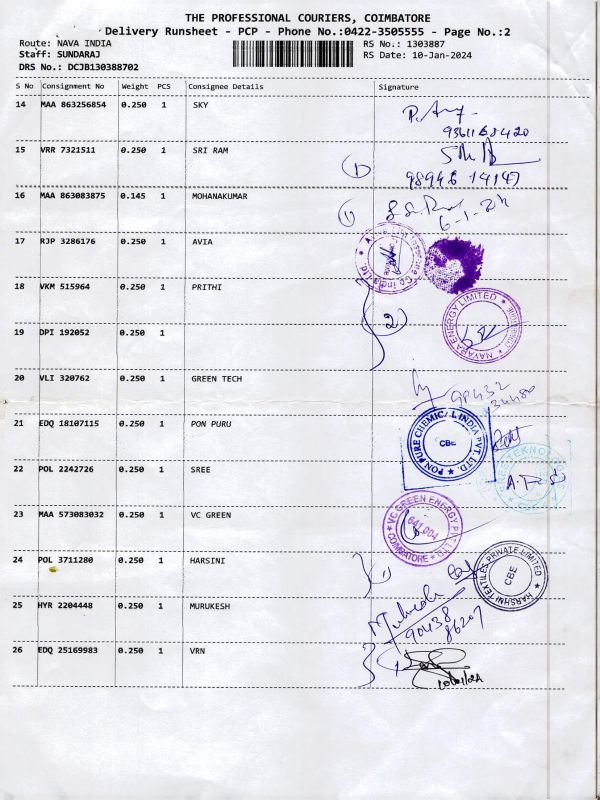 THE PROFESSIONAL COURIERS, COIMBATORE
Delivery Runsheet - PCP - Phone No.:0422-3505555 - Page No.:2
Route: NAVA INDIA RS No.: 1303887
Staff: SUNDARAJ RS Date: 10-Jan-2024
DRS No.: DCJB130388702
S No Consignment No Weight PCS Consignee Details Signature
14 MAA 863256854 0.250 1 SKY
9361168420
15 VRR 7321511 0.250 1 SRI RAM
1
98948 14147
16 MAA 863083875 0.145 1 MOHANAKUMAR
1
17 RJP 3286176 0.250 1 AVIA
18 VKM 515964 0.250 1 PRITHI
NAYARA ENERGY LIMITED
2
19 DPI 192052 0.250 1
20 VLI 320762 0.250 1 GREEN TECH
90432
34486
21 EDQ 18107115 0.250 1 PON PURU
PON PURE CHEMICAL INDIA PVT. LTD.
CBE
22 POL 2242726 0.250 1 SREE
23 MAA 573083032 0.250 1 VC GREEN
VC GREEN ENERGY PVT LTD
641 004
COIMBATORE
24 POL 3711280 0.250 1 HARSINI
HARSHNI TEXTILES PRIVATE LIMITED
CBE
25 HYR 2204448 0.250 1 MURUKESH
90438
86207
26 EDQ 25169983 0.250 1 VRN